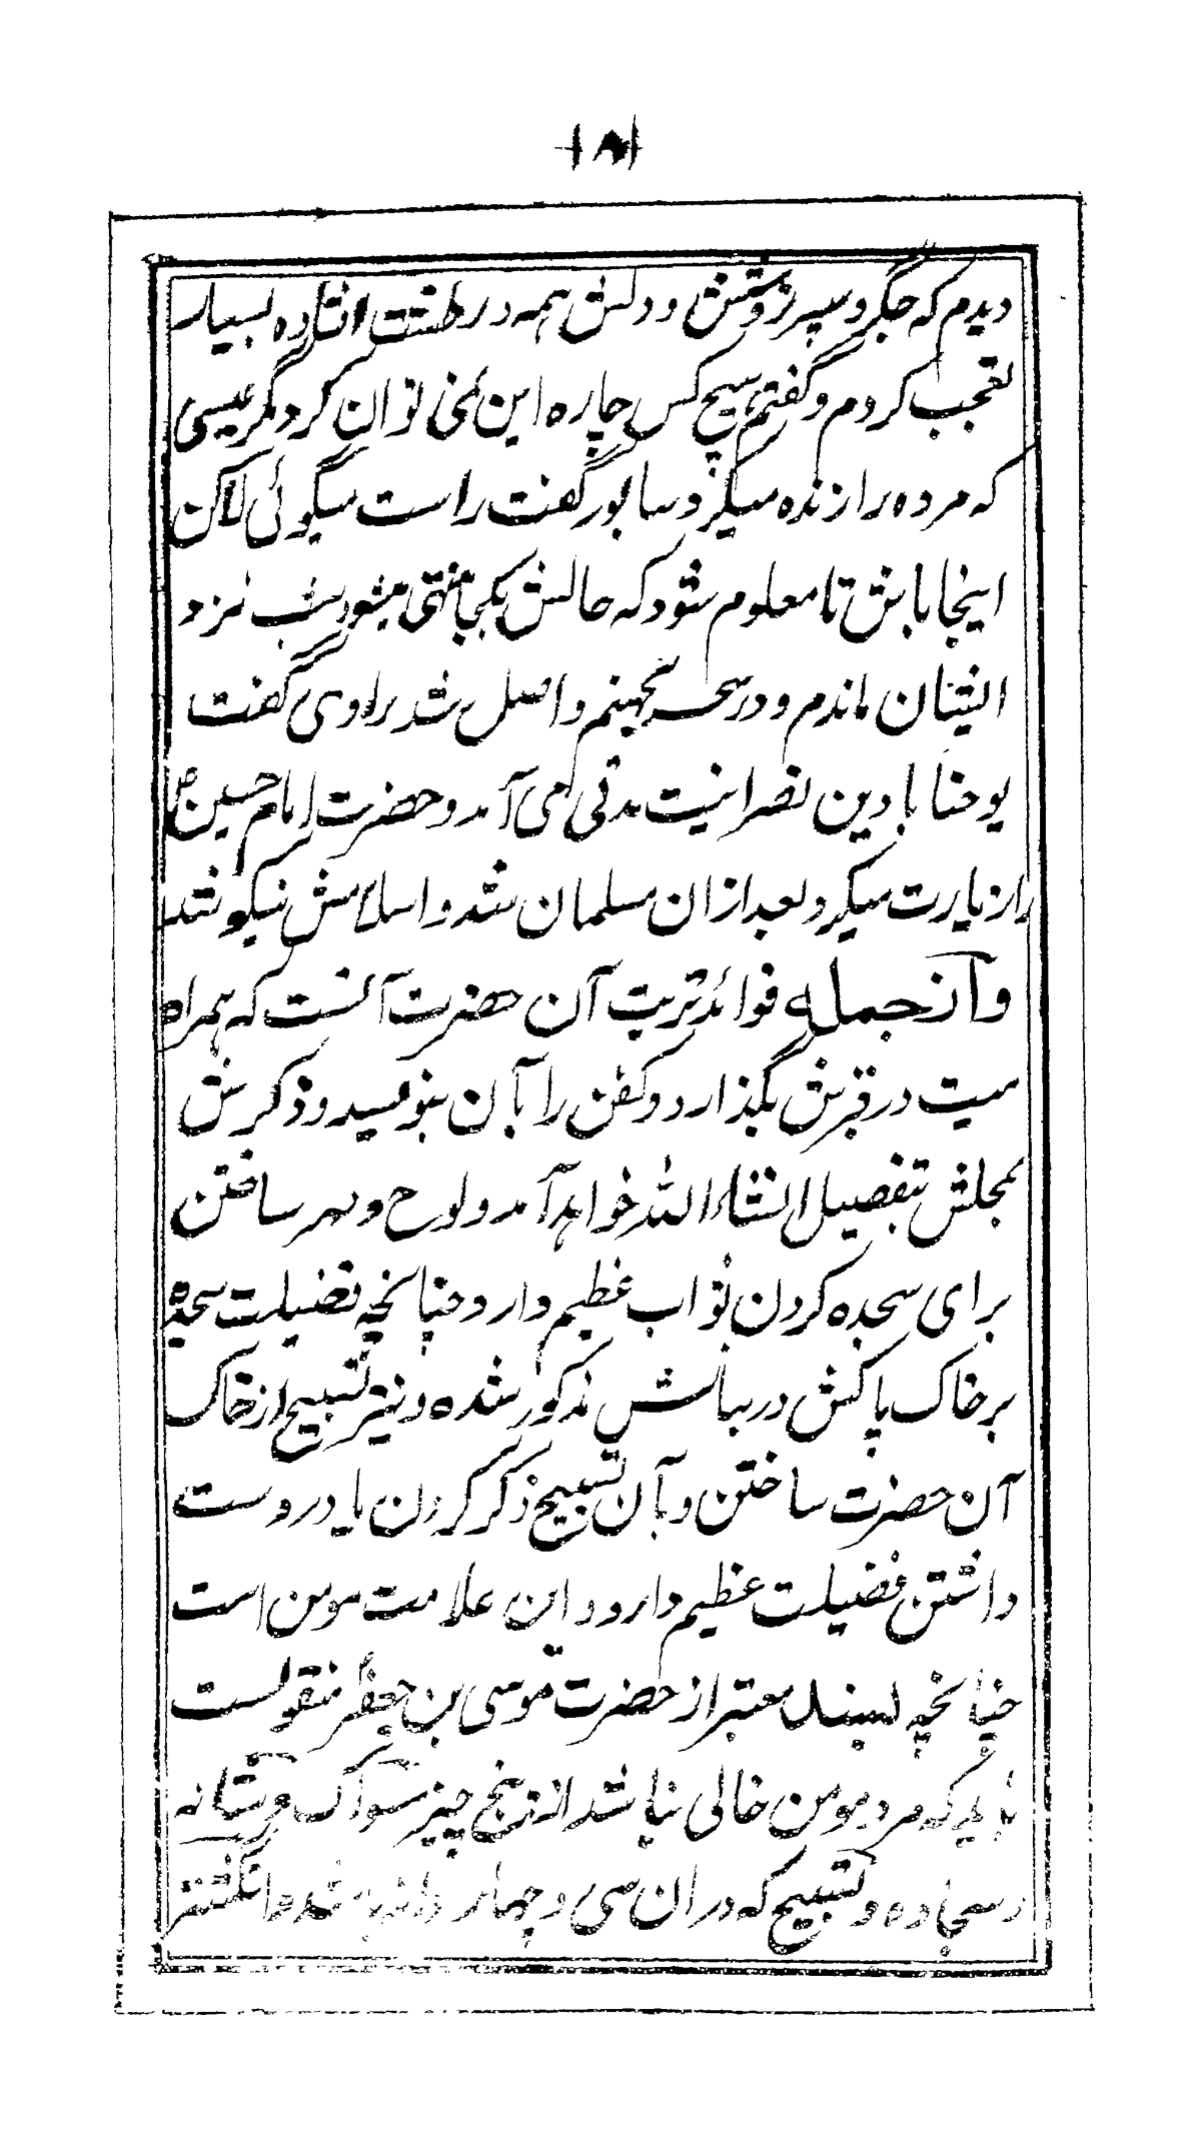 ۱۸۱
دیدم که جگر و سپرز و شش و دلش همه در طشت افتاده بسیار
تعجب کردم و گفتم هیچ کس چاره این نمی توان کرد مگر عیسی
که مرده را زنده میکرد سابور گفت راست میگوئی لاکن
اینجا باش تا معلوم شود که حالش بکجا منتهی میشود شب نزد
ایشان ماندم و در سحر بجهنم واصل شد راوی گفت
یوحنا با دین نصرانیت مدتی می آمد و حضرت امام حسین ع
را زیارت میکرد بعد ازان مسلمان شد و اسلامش نیکو شد
و از جمله فوائد تربت آن حضرت آنست که همراه
میت در قبرش بگذارد و کفن را بآن بنویسد و ذکرش
بمجلش بتفصیل انشاء الله خواهد آمد و لوح و مهر ساختن
برای سجده کردن ثواب عظیم دارد چنانچه فضیلت سجده
بر خاک پاکش در بیانش مذکور شده و نیز تسبیح از خاک
آن حضرت ساختن و بآن تسبیح ذکر کردن یا در دست
داشتن فضیلت عظیم دارد و این علامت مومن است
چنانچه بسند معتبر از حضرت موسی بن جعفر منقولست
باید که مرد مومن خالی نباشد از پنج چیز مسواک و شانه
و سجاده و تسبیح که دران سی و چهار دانه باشد و انگشتر